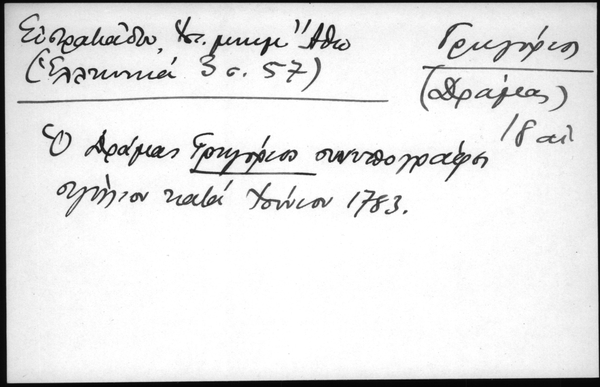 Εὐστρατιάδου, Ἱστ. μνημ. Ἄθω
(Ἑλληνικά 3 σ. 57)
Γρηγόριος
(Δράμας)
18 αἰ
Ὁ Δράμας Γρηγόριος συνυπογράφει
σιγίλιον κατά Ἰούνιον 1783.